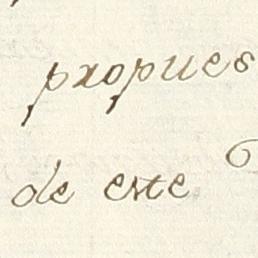 propues
de este